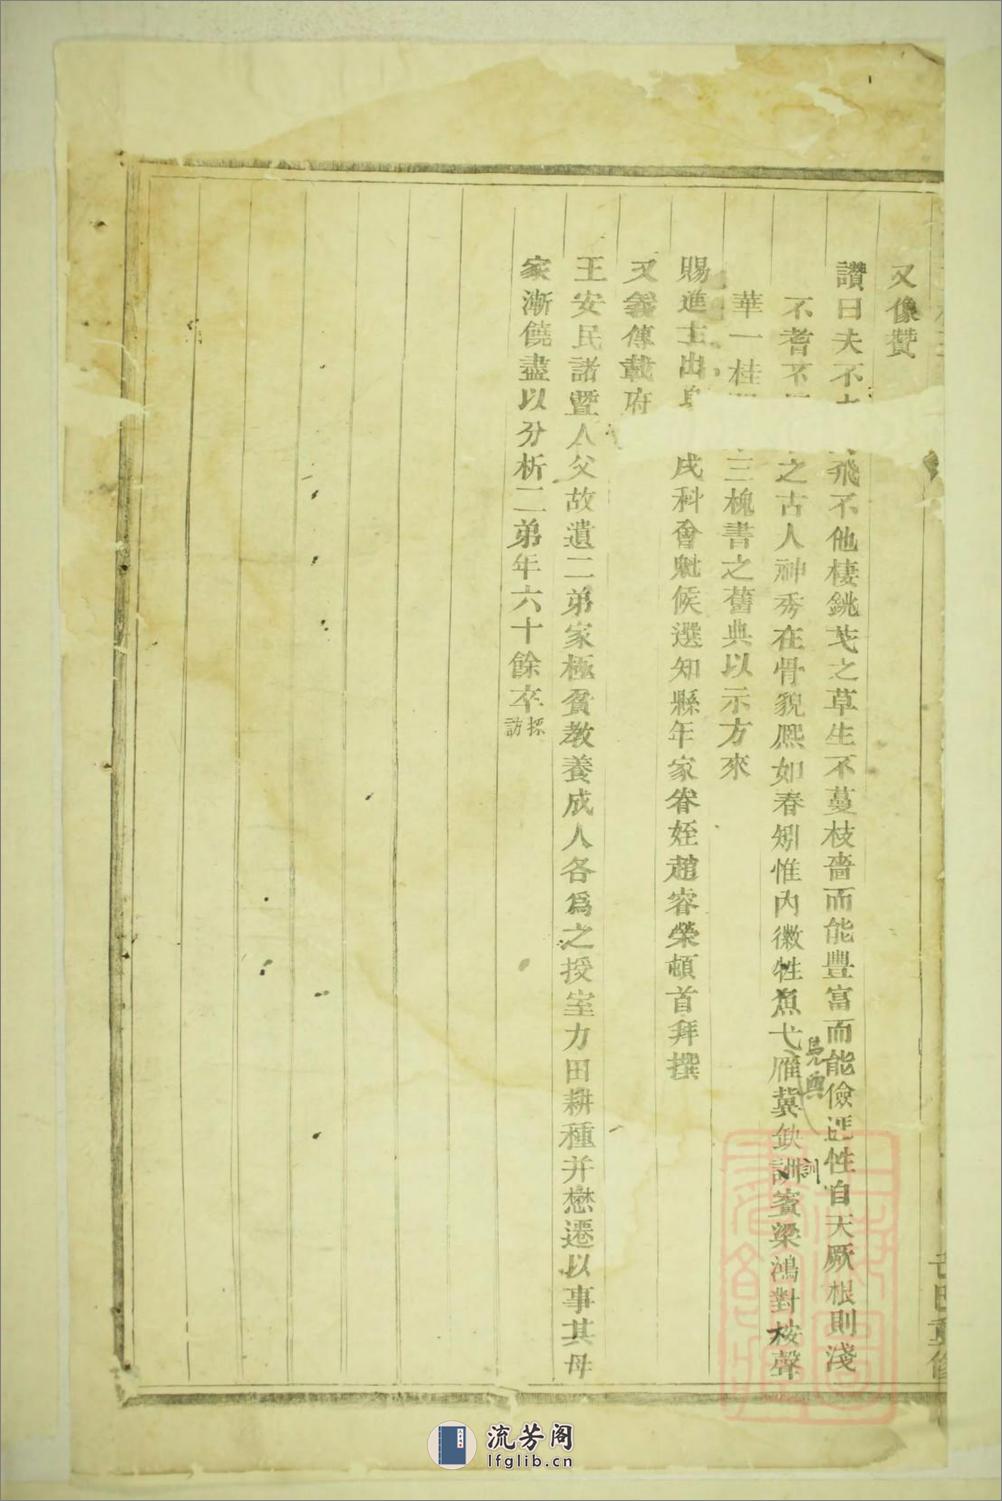 又像贊
讚曰夫不 飛不他棲銚芅之草生不蔓枝嗇而能豐富而能儉 性自天厥根則淺
不耆不 之古人神秀在骨貌熈如春矧惟內徽牲魚弋雁冀缺詶賓梁鴻對桉聲
鳧輿
訓
華一桂 三槐書之舊典以示方來
賜進士出身 戌科會魁候選知縣年家眷姪趙睿榮頓首拜撰
又義傳載府
王安民諸暨人父故遺二弟家極貧教養成人各爲之授室力田耕種并懋遷以事其母
家漸饒盡以分析二弟年六十餘卒採訪
流芳阁
lfglib.cn